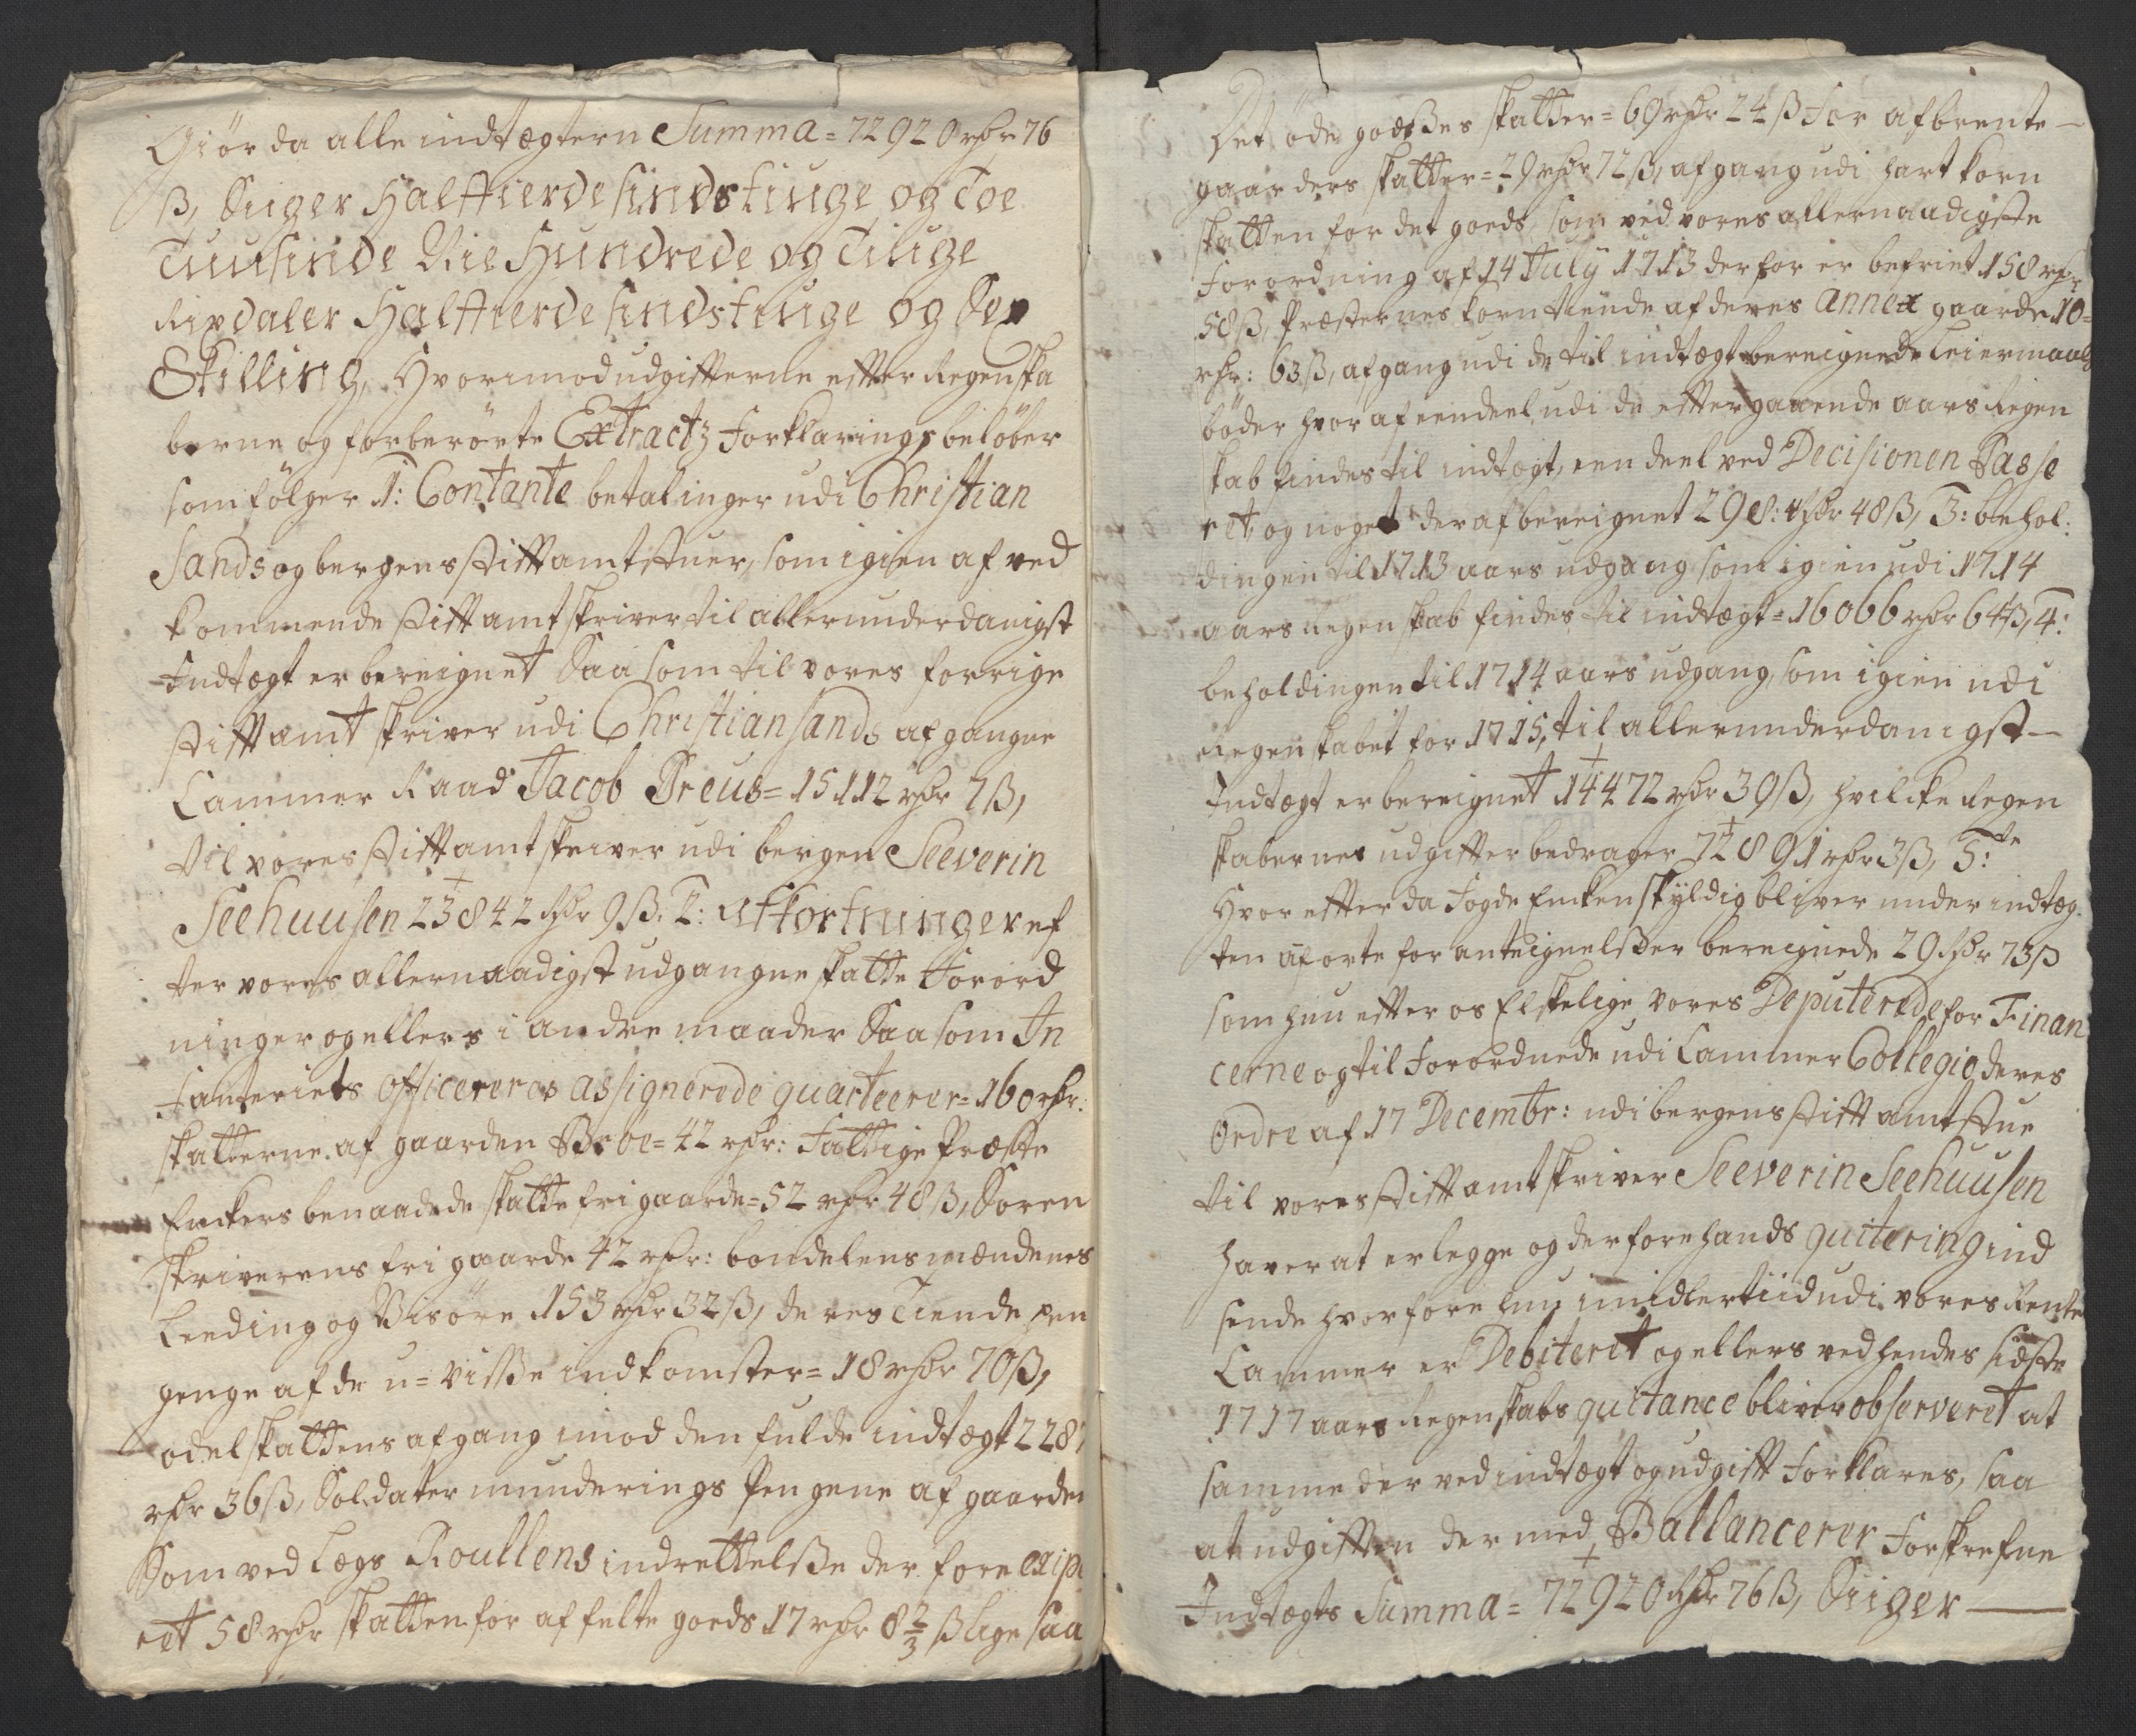 Giör da alle indtægtern Summa = 72920 rdr 76
ß, Siiger Halffierdesindstiuge og Toe
Tuusinde Nie Hundrede og Tiuge
Rixdaler Halffierdesindstiuge og Sex
Skilling, Hvorimod udgifterne efter Regenska
berne og forberörte Extractz Forklarings belöber
som fölger 1: Contante betalinger udi Christian
Sands og bergens stift amtstuer, som igien af ved
kommende stiftamtskriver til allerunderdanigst
Indtægt er bereignet Saasom til vores forrige
stiftamtskriver udi Christiansands afgangne
Cammer Raad Jacob Preus = 15112 rdr 7ß,
til vores stiftamtskriver udi bergen Seeverin
Seehuusen 23842 rdr 9ß. 2: Afkortninger ef
ter vores allernaadigst udgangne skatte Forord
ninger og ellers i andre maader Saasom In
fanteriets officereres assignerede quarteerer = 160 rdr:
skatterne af gaarden Broe = 42 rdr: Fattige Præste
Enckers benaadede skattefri gaarde = 52 rdr 48ß, Soren
skriverens fri gaarde 42 rdr: bondelensmændenes
Leeding og Visöre 153 rdr 32ß, deres Tiende pen
genge af de u=visse indkomster = 18 rdr 70ß,
odelskattens afgang imod den fulde indtægt 2287
rdr 36ß, Soldater munderings Pengene af gaarden
Som ved Lægs Roullens indrettelsse der fore exipe
ret 58 rdr skatten for affelte goeds 17 rdr 8 2/3 ß lige saa
Det öde godsses skatter = 69 rdr 24 ß for afbrente
gaarders skatter = 29 rdr 72ß, afgang udi hartkorn
skatten for det goeds, som ved vores allernaadigste
Forordning af 14 July 1713 derfor er befriet 158 rdr
58ß, Præsternes korn tiende af deres annex gaarde 10=
rdr: 63ß, afgang udi de til indtægt bereignede Leiermaals
böder hvor af eendeel udi de effter gaaende aars Regen
skab findes til indtægt, een deel ved Decisionen Passe
ret, og noget deraf bereignet 298: rdr 48ß, 3: behol:
dingen til 1713 aars udgang som igien udi 1714
aars regenskab findes til indtægt = 16066 rdr 64ß, 4:
beholdingen til 1714 aars udgang, som igien udi
Regenskabet for 1715, til allerunderdanigst
Indtægt er bereignet 14472 rdr 39ß, hvilcke Regen
skabernes udgifter bedrager 72891 rdr 3ß, 5:te
Hvor effter da Fogde Encken skyldig bliver under indtæg
ten aforte for anteignelsser bereignede 29 rdr 73ß
som hun efter os Elskelige vores Deputerede for Finan
cerne og til Forordnede udi Cammer Collegio deres
Ordre af 17 Decembr: udi bergens stift amtstue
til vores stiftamtskriver Seeverin Seehuusen
haver at erlegge og derfore hands quitering ind
sende hvorfore hun imidlertiid udi vores Rente
Cammer er Debiteret og ellers ved hendes sidste
1717 aars Regenskabs quitance bliver observeret at
samme der ved indtægt og udgift Forklares, saa
at udgiften der med Ballancerer Forskrefne
Indtægts Summa = 72920 rdr 76ß, Siiger